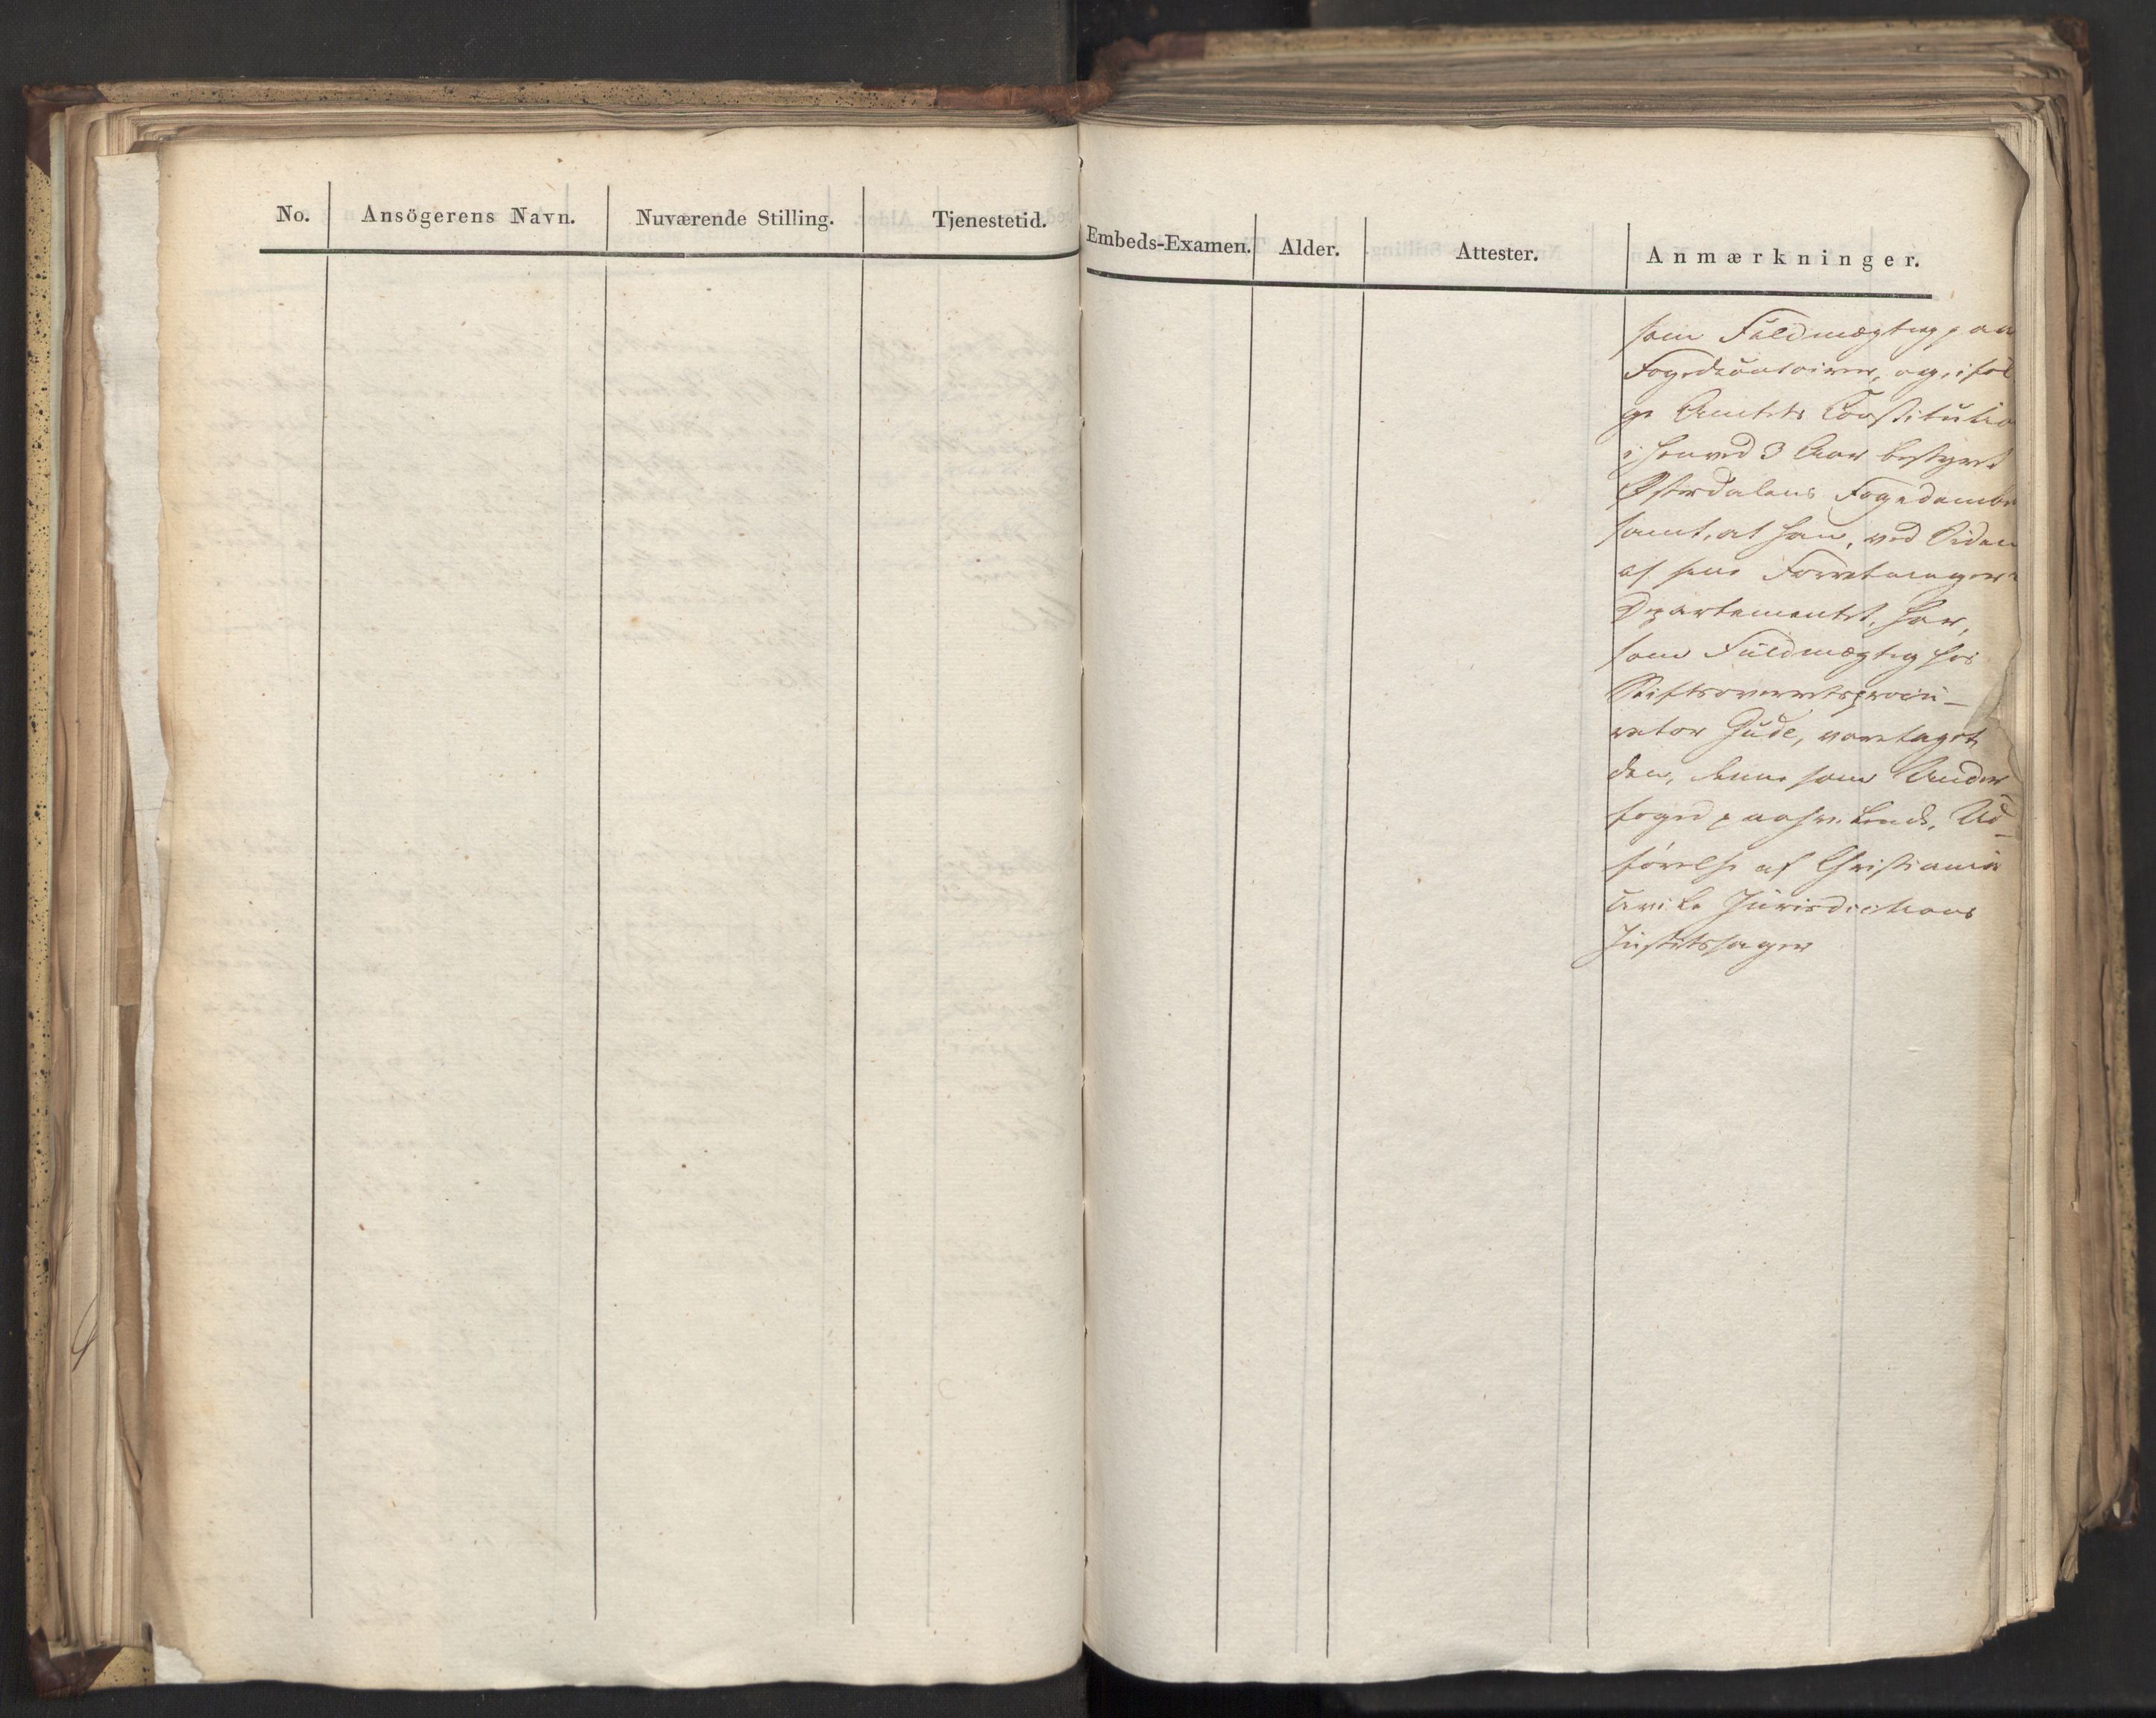 No. Ansögerens Navn. Nuværende Stilling. Tjenestetid.
Embeds-Examen. Alder. Attester. Anmærkninger.
som Fuldmægtig paa
Fogedcontoirer, og, iføl
ge Amtets Constitutio
i henved 3 Aar bestyret
Østerdalens Fogedembe
samt, at han, ved Siden
af sine Forretninger i
Departementet, har,
som Fuldmægtig hos
Stiftsoverretsprocu-
rator Gude, varetaget
den, denne som Under-
foged paahvilende, Ud-
førelse af Christiania
civile Jurisdictions
Justitssager